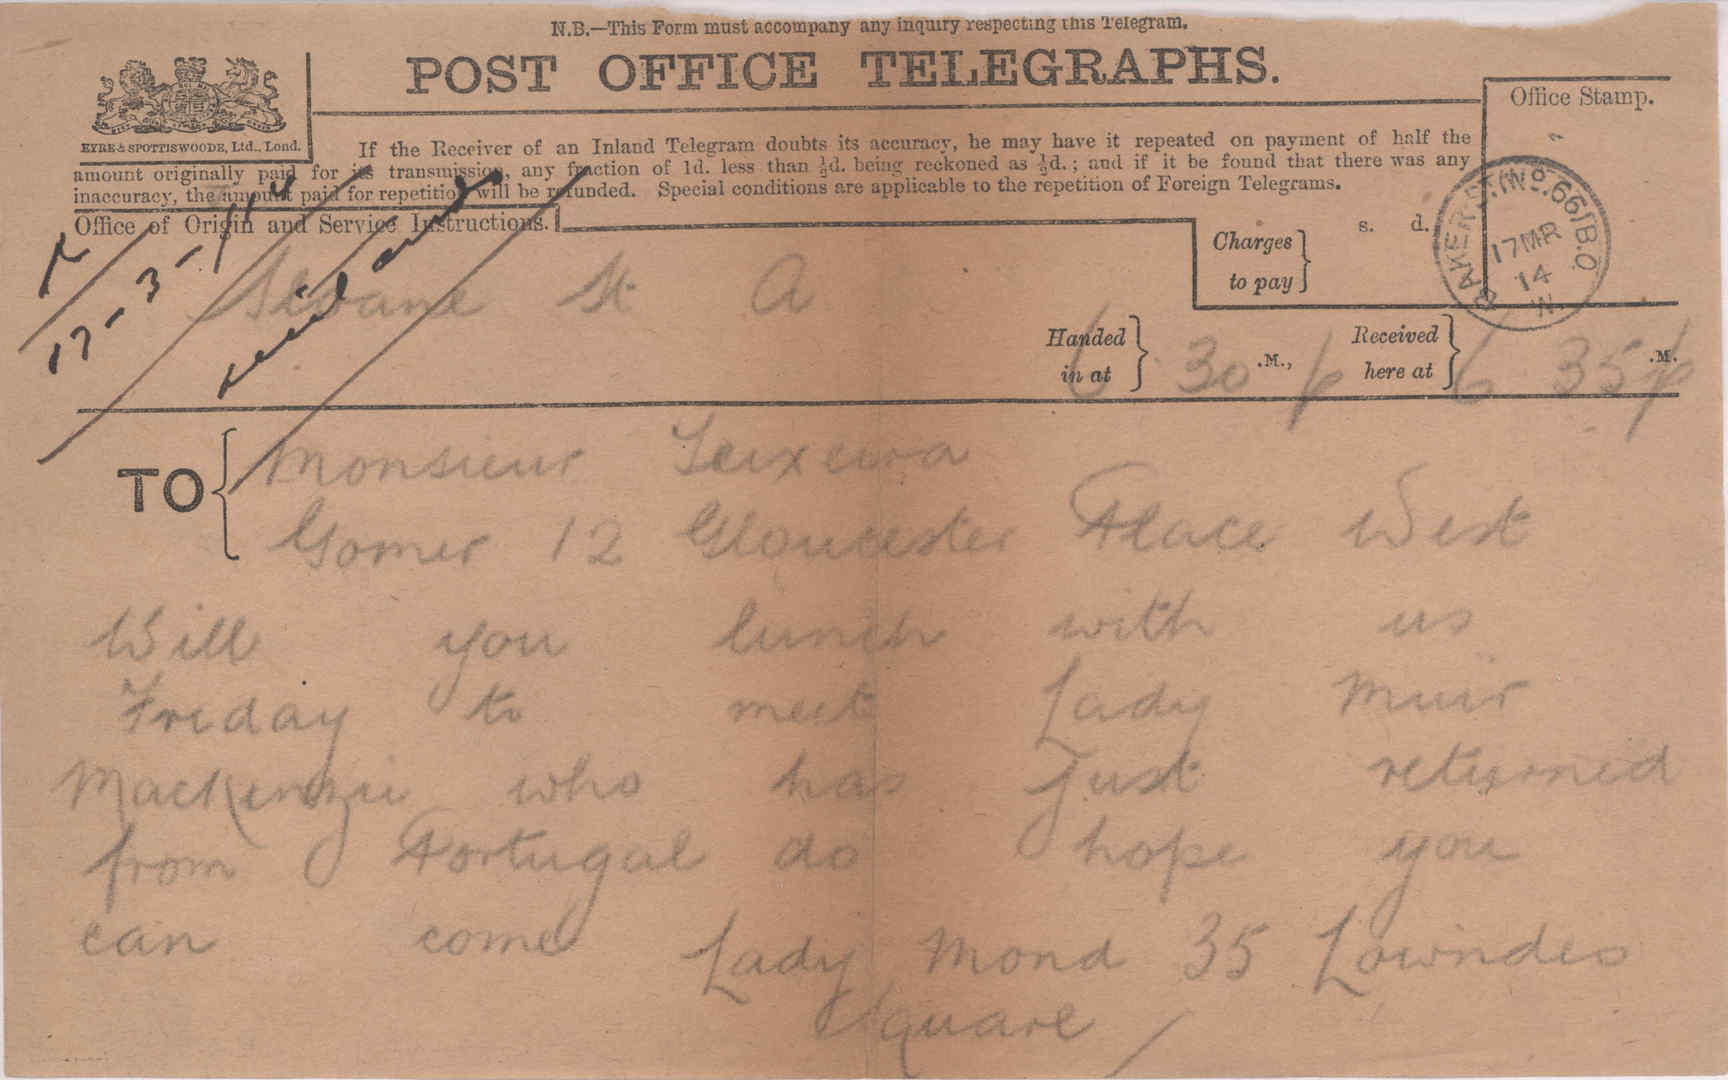 N.B.—This Form must accompany any inquiry respecting this Telegram.
POST OFFICE TELEGRAPHS.
EYRE & SPOTTISWOODE, Ltd., Lond.
Office Stamp.
If the Receiver of an Inland Telegram doubts its accuracy, he may have it repeated on payment of half the
amount originally paid for its transmission, any fraction of 1d. less than ½d. being reckoned as ½d.; and if it be found that there was any
inaccuracy, the amount paid for repetition will be refunded. Special conditions are applicable to the repetition of Foreign Telegrams.
Office of Origin and Service Instructions.
17-3-14
Sloane St A
Charges to pay } s. d.
BAKER ST. (No. 66) B.O.
17 MR
14
W.
Handed in at } 6 30 p .M., Received here at } 6 35 p .M.
TO { Monsieur Teixeira
Gomer 12 Gloucester Place West
Will you lunch with us
Friday to meet Lady Muir
Mackenzie who has just returned
from Portugal do hope you
can come Lady Mond 35 Lowndes
Square